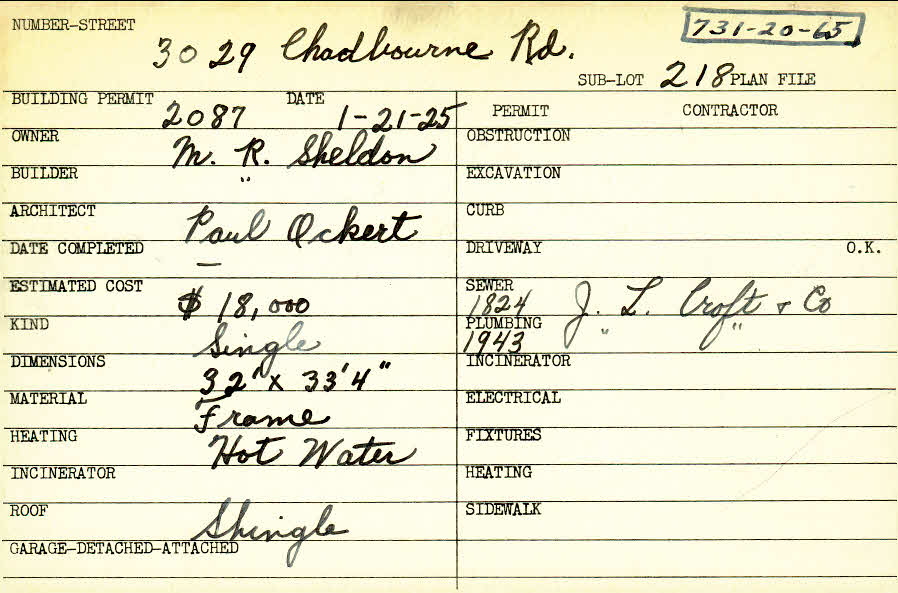 NUMBER-STREET 3029 Chadbourne Rd. 731-20-65
SUB-LOT 218 PLAN FILE
BUILDING PERMIT 2087 DATE 1-21-25 PERMIT CONTRACTOR
OWNER M. R. Sheldon OBSTRUCTION
BUILDER " EXCAVATION
ARCHITECT Paul Ockert CURB
DATE COMPLETED — DRIVEWAY O.K.
ESTIMATED COST $ 18,000 SEWER 1824 J. L. Croft & Co
KIND Single PLUMBING 1943 " "
DIMENSIONS 32' x 33'4" INCINERATOR
MATERIAL Frame ELECTRICAL
HEATING Hot Water FIXTURES
INCINERATOR HEATING
ROOF Shingle SIDEWALK
GARAGE-DETACHED-ATTACHED